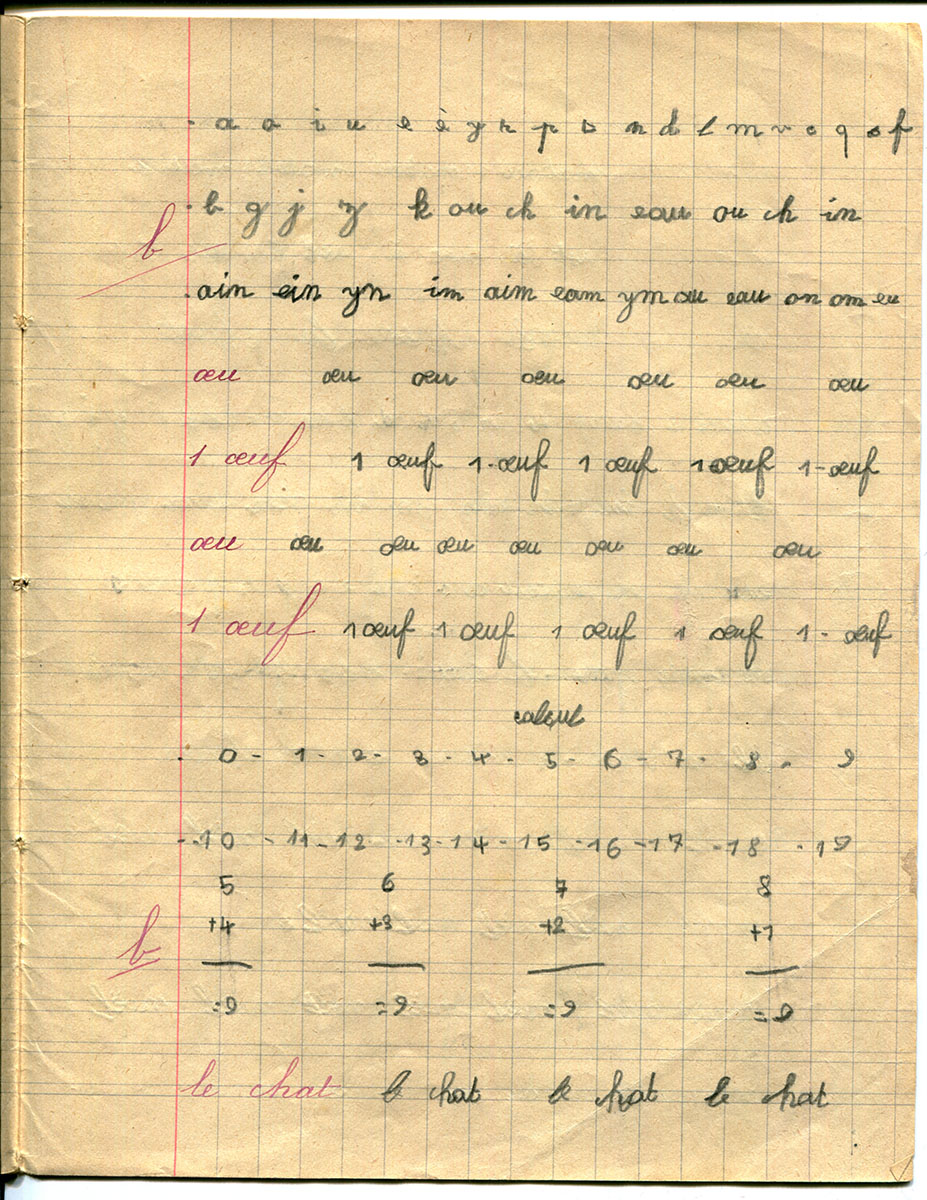 a o i u e é y r p s n d l m v c q s f
b g j z k ou ch in eau ou ch in
b
ain ein yn im aim eam ym au eau on om eu
œu œu œu œu œu œu œu
1 œuf 1 œuf 1 œuf 1 œuf 1 œuf 1 œuf
œu œu œu œu œu œu œu œu
1 œuf 1 œuf 1 œuf 1 œuf 1 œuf 1 - œuf
calcul
0 - 1 - 2 - 3 - 4 - 5 - 6 - 7 - 8 - 9
- 10 - 11 - 12 - 13 - 14 - 15 - 16 - 17 - 18 - 19
5 6 7 8
+4 +3 +2 +1
b
=9 =9 =9 =9
le chat le chat le chat le chat